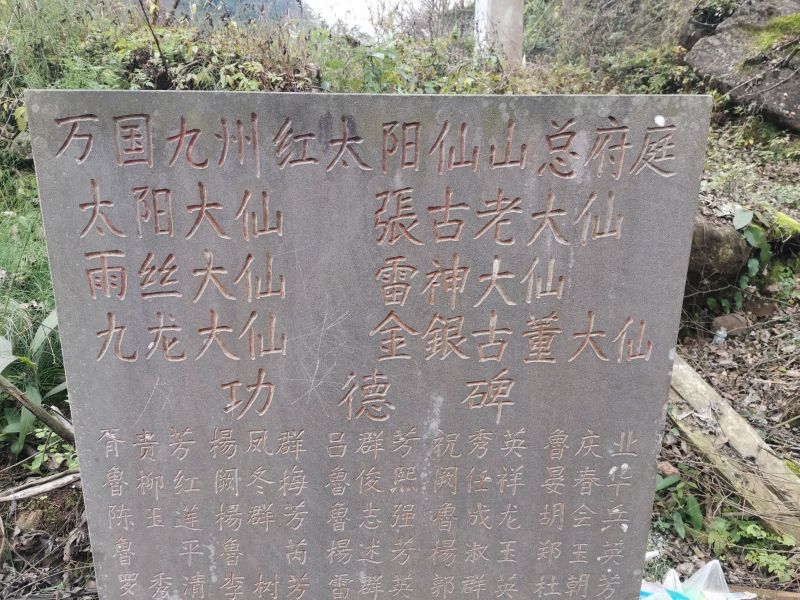 万国九州红太阳仙山总府庭
太阳大仙 張古老大仙
雨丝大仙 雷神大仙
九龙大仙 金銀古董大仙
功德碑
胥贵芳 楊凤群 吕群芳 祝秀英 魯庆业
魯柳红 阙冬梅 魯俊熙 阙任祥 晏春华
陈玉莲 楊群芳 魯志强 魯成龙 胡全兵
魯平 魯芮 楊述芳 楊淑王 郑王英
罗秀清 李树芳 雷群英 郭群英 杜朝芳